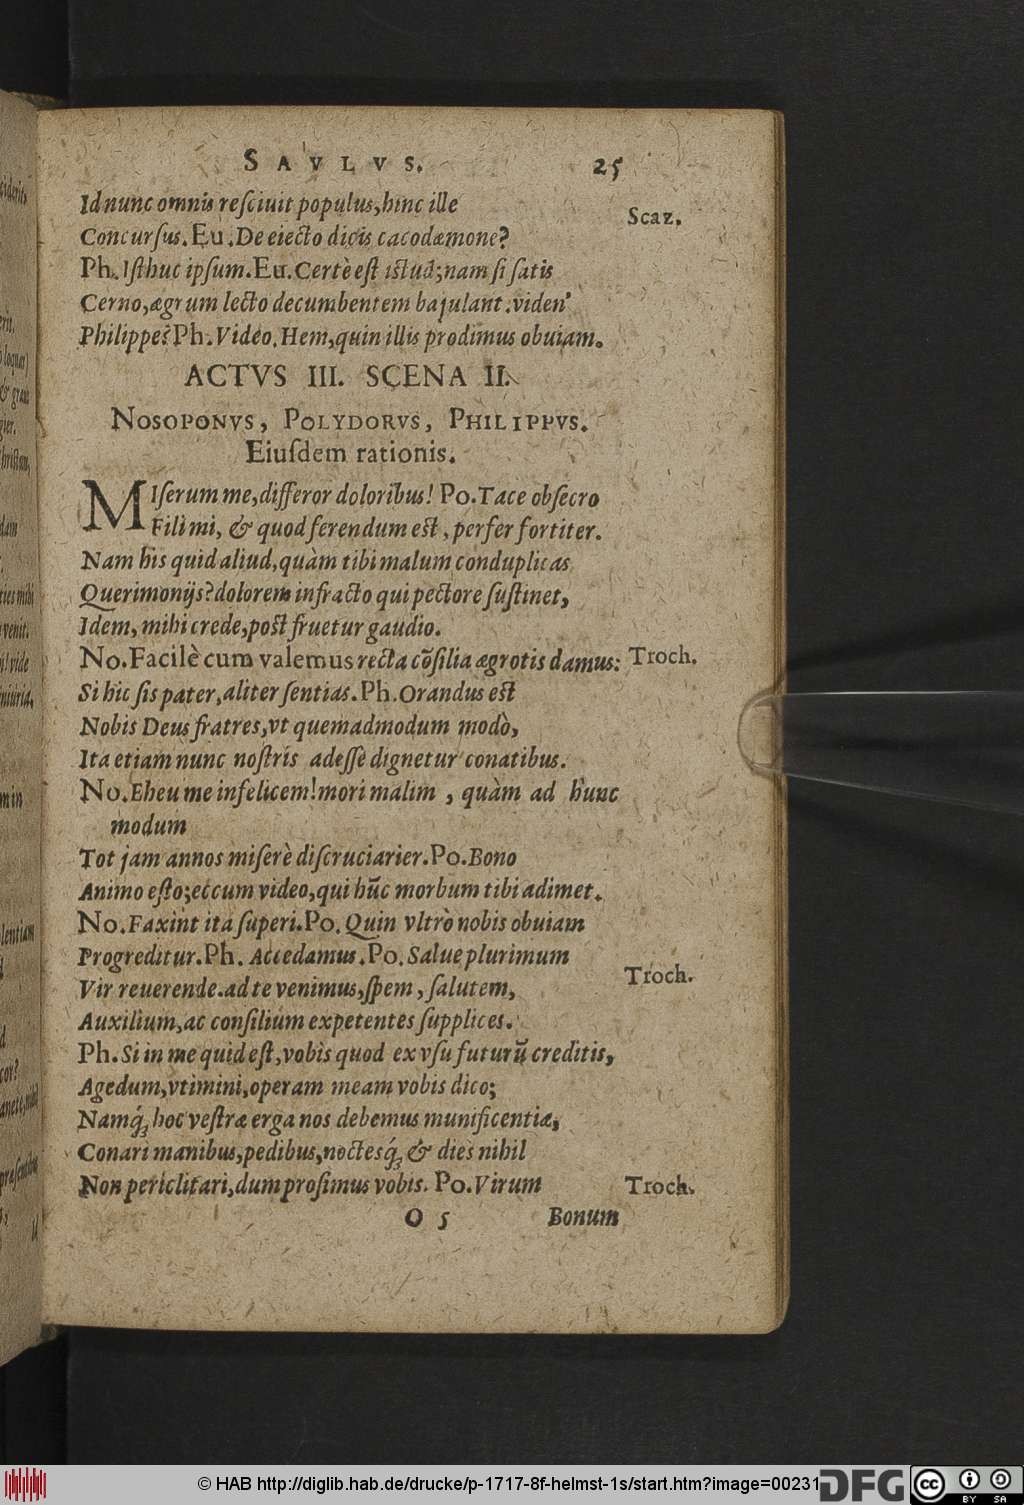 SAVLVS. 25
Id nunc omnis resciuit populus, hinc ille
Scaz.
Concursus. Eu. De eiecto dicis cacodæmone?
Ph. Isthuc ipsum. Eu. Certè est istud; nam si satis
Cerno, ægrum lecto decumbentem bajulant. viden'
Philippe? Ph. Video. Hem, quin illis prodimus obuiam.
ACTVS III. SCENA II.
NOSOPONVS, POLYDORVS, PHILIPPVS.
Eiusdem rationis.
MIserum me, differor doloribus! Po. Tace obsecro
Fili mi, & quod ferendum est, perfer fortiter.
Nam his quid aliud, quàm tibi malum conduplicas
Querimonijs? dolorem infracto qui pectore sustinet,
Idem, mihi crede, post fruetur gaudio.
No. Facilè cum valemus recta cõsilia ægrotis damus: Troch.
Si hic sis pater, aliter sentias. Ph. Orandus est
Nobis Deus fratres, vt quemadmodum modò,
Ita etiam nunc nostris adesse dignetur conatibus.
No. Eheu me infelicem! mori malim, quàm ad hunc
modum
Tot jam annos miserè discruciarier. Po. Bono
Animo esto; eccum video, qui hūc morbum tibi adimet.
No. Faxint ita superi. Po. Quin vltrò nobis obuiam
Progreditur. Ph. Accedamus. Po. Salue plurimum
Troch.
Vir reuerende. ad te venimus, spem, salutem,
Auxilium, ac consilium expetentes supplices.
Ph. Si in me quid est, vobis quod ex vsu futurū creditis,
Agedum, vtimini, operam meam vobis dico;
Namq́; hoc vestræ erga nos debemus munificentiæ,
Conari manibus, pedibus, noctesq́; & dies nihil
Non periclitari, dum prosimus vobis. Po. Virum Troch.
O 5 Bonum
© HAB http://diglib.hab.de/drucke/p-1717-8f-helmst-1s/start.htm?image=00231
DFG
cc BY SA